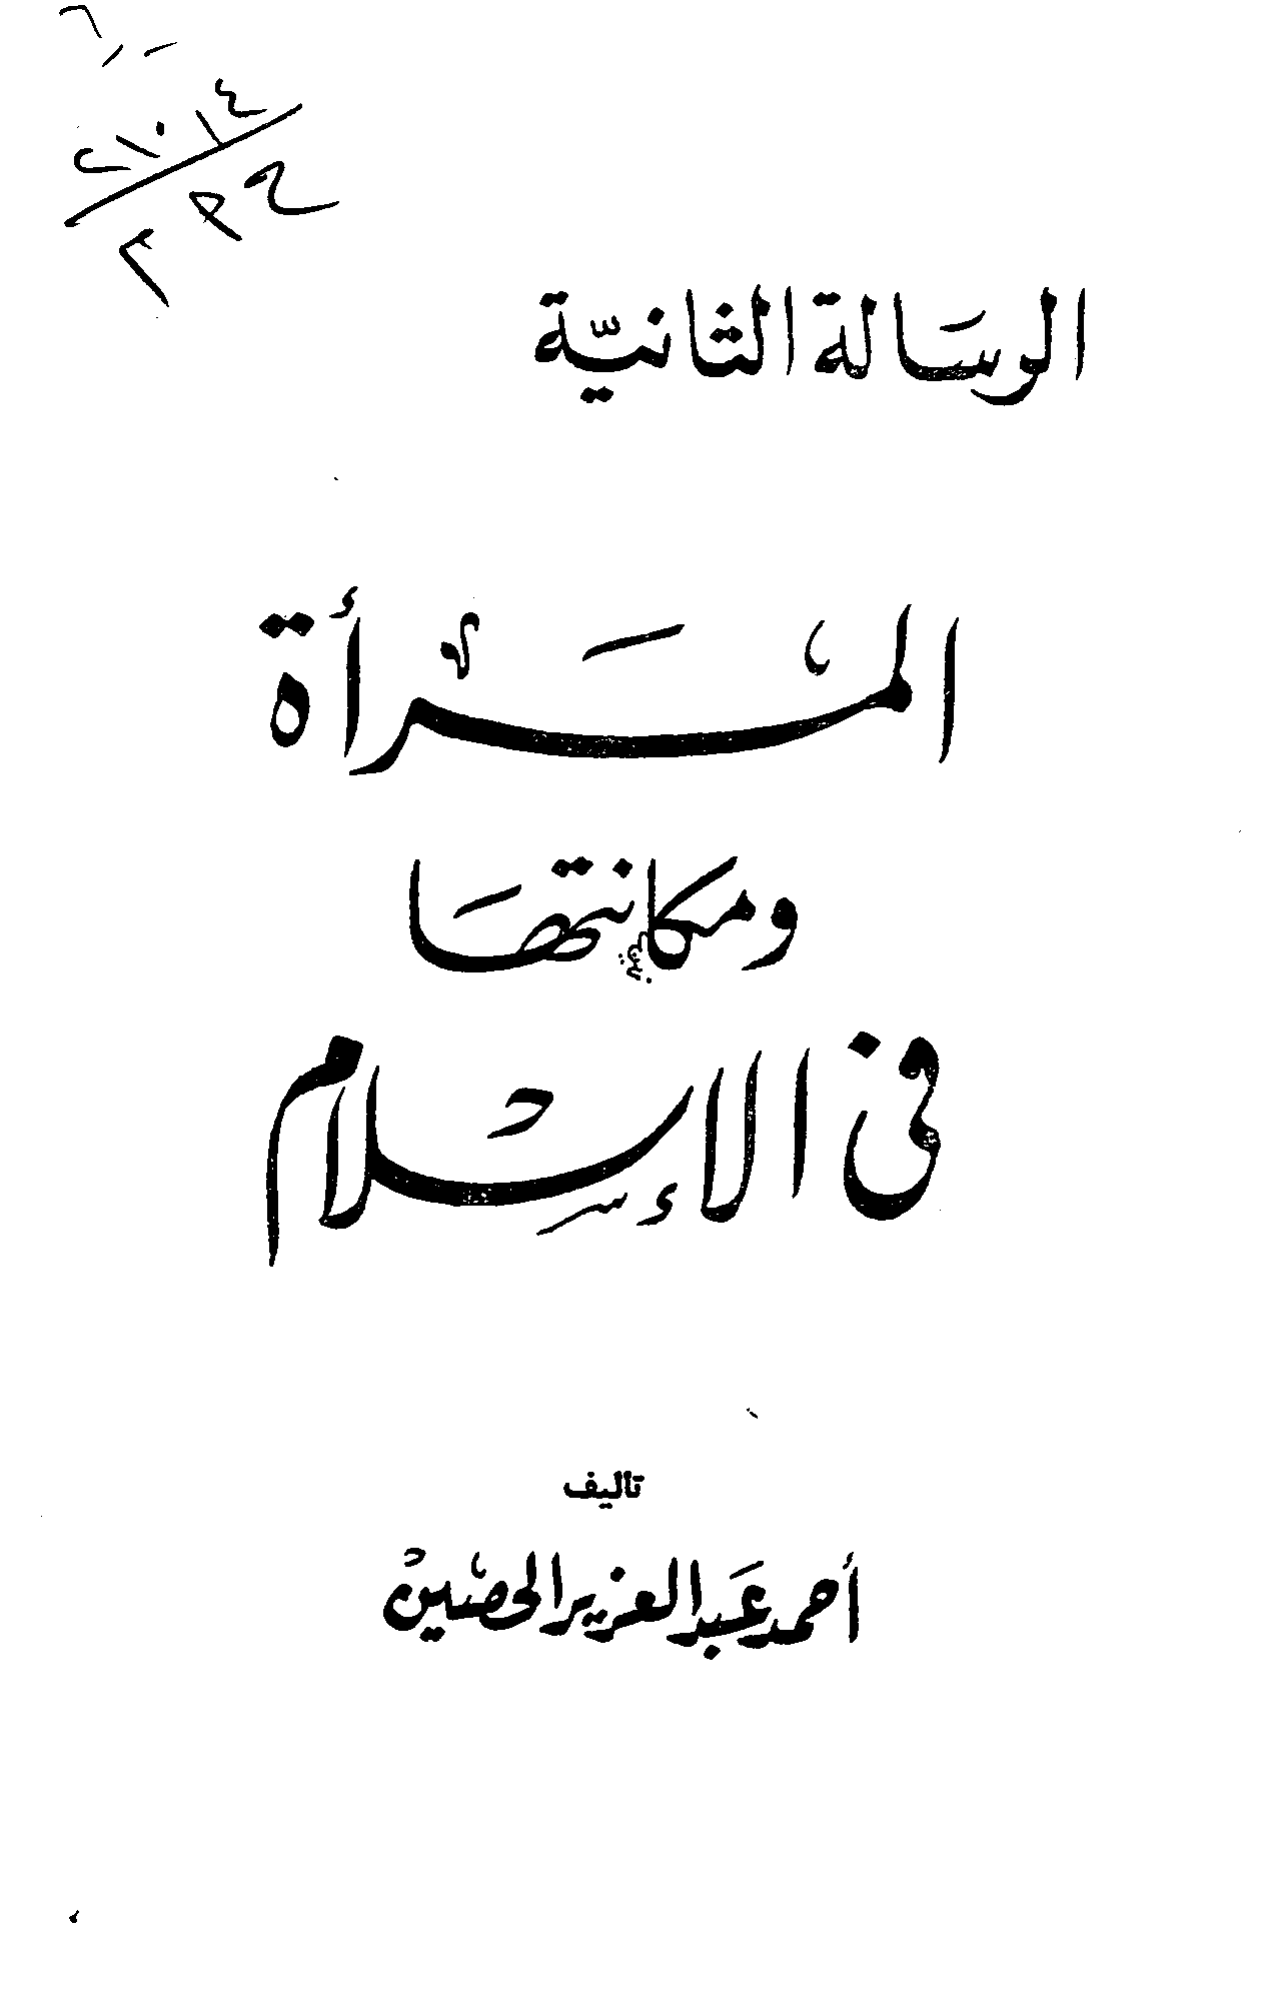 الرسالة الثانية
المرأة
ومكانتها
في الإسلام
تأليف
أحمد عبد العزيز الحصين